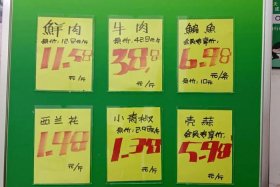 鲜肉
原价:12.8元/斤
11.58
元/斤
牛肉
原价:42.8元/斤
38.8
元/斤
鳊鱼
会员专享价:
6.98
元/条
原价:10元
西兰花
1.98
元/斤
小青椒
原价:2.98元/斤
1.38
元/斤
青蒜
会员专享价:
5.98
元/斤